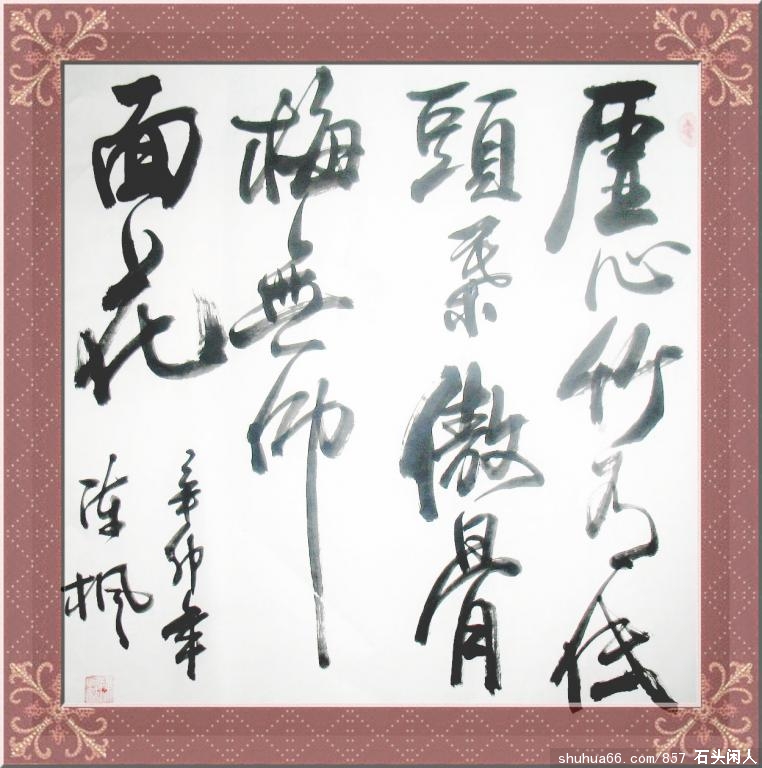 虚心竹有低
頭葉傲骨
梅無仰
面花
辛卯年
陈枫
shuhua66.com/857 石头闲人